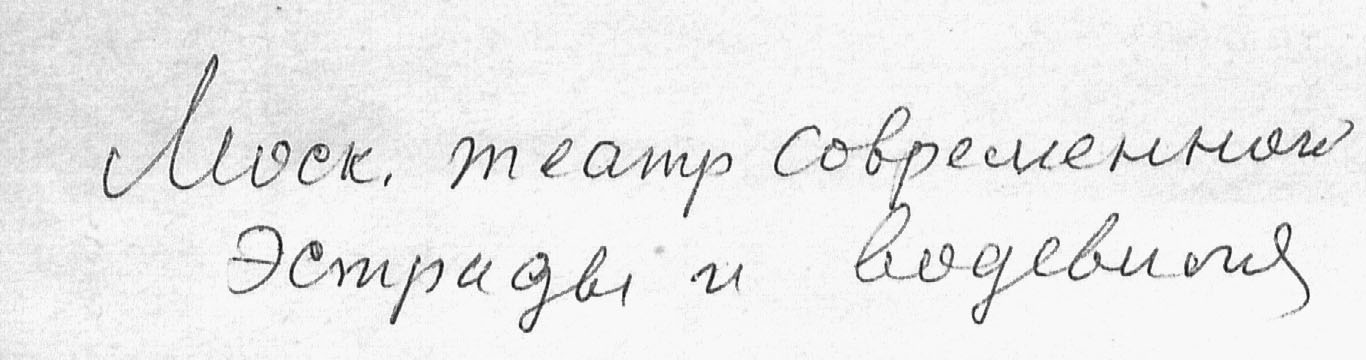 Моск. театр современной
Эстрады и водевиля